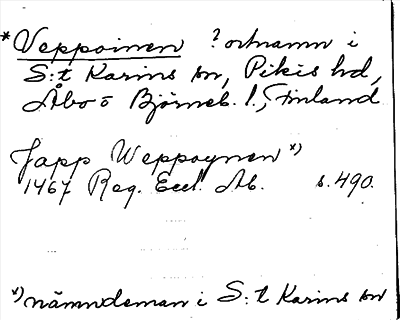 *Veppoinen ? ortnamn i
S:t Karins sn, Pikis hd,
Åbo o Björneb. l., Finland
Japp Weppoynen x)
1467 Reg. Eccl. Ab. s. 490.
x) nämndeman i S:t Karins sn